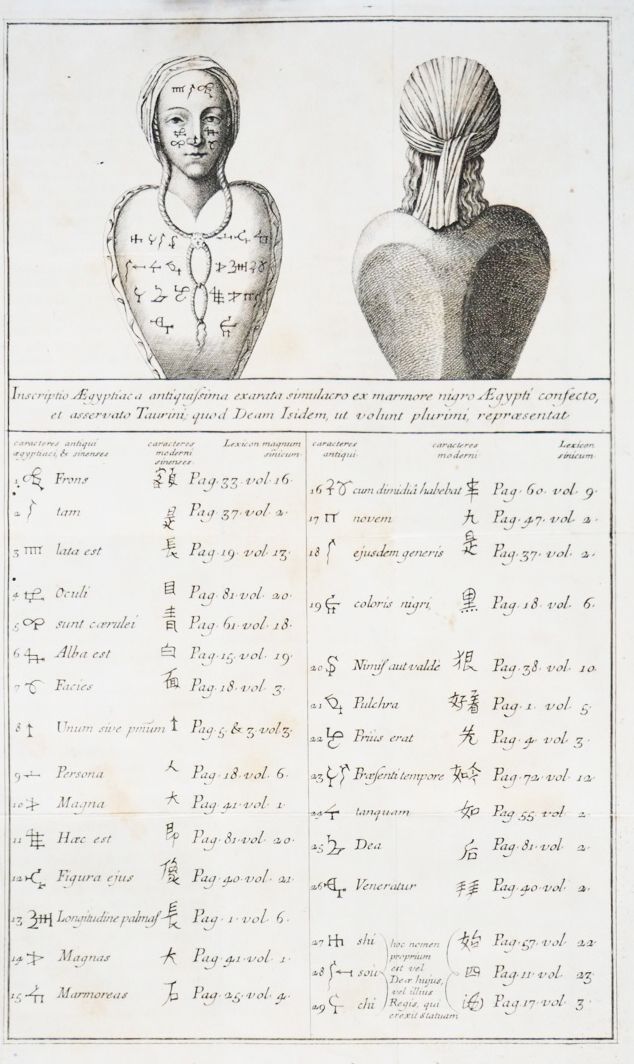 Inscriptio Ægyptiaca antiquissima exarata simulacro ex marmore nigro Ægypti confecto,
et asservato Taurini; quod Deam Isidem, ut volunt plurimi, repræsentat.
caracteres antiqui ægyptiaci, & sinenses
caracteres moderni sinenses
Lexicon magnum sinicum
1 Frons 額 Pag. 33. vol. 16.
2 tam 是 Pag. 37. vol. 2.
3 lata est 長 Pag. 19. vol. 13.
4 Oculi 目 Pag. 81. vol. 20.
5 sunt cærulei 青 Pag. 61. vol. 18.
6 Alba est 白 Pag. 15. vol. 19.
7 Facies 面 Pag. 18. vol. 3.
8 Unum sive Pag. 5. & 3. vol. 3.
9 Persona 人 Pag. 18. vol. 6.
10 Magna 大 Pag. 41. vol. 1.
11 Hæc est 即 Pag. 81. vol. 20.
12 Figura ejus 像 Pag. 40. vol. 21.
13 Longitudine 長 Pag. 1. vol. 6.
14 Magnas 大 Pag. 41. vol. 1.
15 Marmoreas 石 Pag. 25. vol. 4.
caracteres antiqui
caracteres moderni
Lexicon sinicum
16 cum dimidiâ habebat Pag. 60. vol. 9.
17 novem 九 Pag. 47. vol. 2.
18 ejusdem generis 是 Pag. 37. vol. 2.
19 coloris nigri, 黑 Pag. 18. vol. 6.
20 Nimis aut valdè 狠 Pag. 38. vol. 10.
21 Pulchra 好看 Pag. 1. vol. 5.
22 Priùs erat 先 Pag. 4. vol. 3.
23 Præsenti tempore 如今 Pag. 72. vol. 12.
24 tanquam 如 Pag. 55 vol. 2.
25 Dea 后 Pag. 81. vol. 2.
26 Veneratur 拜 Pag. 40. vol. 2.
27 shi 始 Pag. 57. vol. 22.
28 sou 四 Pag. 11. vol. 23.
29 chi Pag. 17. vol. 3.
hoc nomen
proprium
est vel
Deæ hujus,
vel illius
Regis, qui
erexit statuam